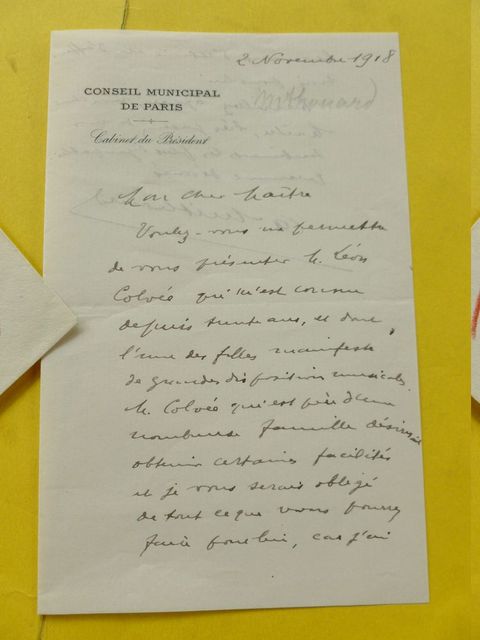 2 Novembre 1918
CONSEIL MUNICIPAL
DE PARIS
Cabinet du Président
Mon cher Maître
Voulez-vous me permettre
de vous présenter M. Léon
Colvée qui m'est connu
depuis trente ans, et dont
l'une des filles manifeste
de grandes dispositions musicales.
M. Colvée qui est père d'une
nombreuse famille désirerait
obtenir certaines facilités
et je vous serais obligé
de tout ce que vous pourrez
faire pour lui, car j'ai